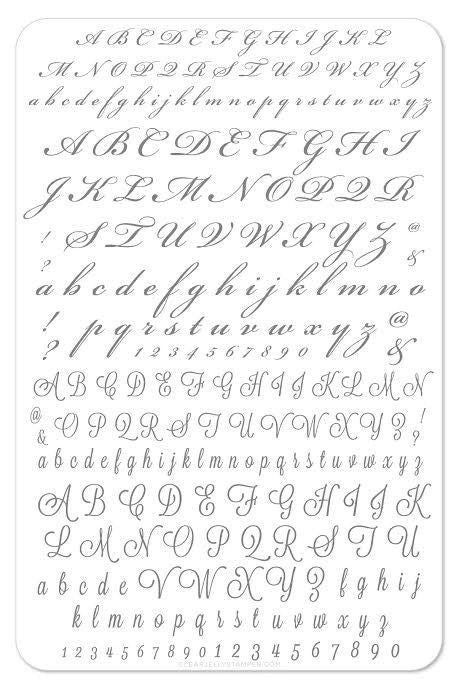 A B C D E F G H I J K L
M N O P Q R S T U V W X Y Z
a b c d e f g h i j k l m n o p q r s t u v w x y z
A B C D E F G H I
J K L M N O P Q R
! S T U V W X Y Z @
? &
a b c d e f g h i j k l m n o
! p q r s t u v w x y z @
? 1 2 3 4 5 6 7 8 9 0 &
A B C D E F G H I J K L M N
@ O P Q R S T U V W X Y Z !
& ?
a b c d e f g h i j k l m n o p q r s t u v w x y z
A B C D E F G H I J K
L M N O P Q R S T U
a b c d e V W X Y Z f g h i j
k l m n o p q r s t u v w x y z
1 2 3 4 5 6 7 8 9 0 1 2 3 4 5 6 7 8 9 0
CLEARJELLYSTAMPER.COM